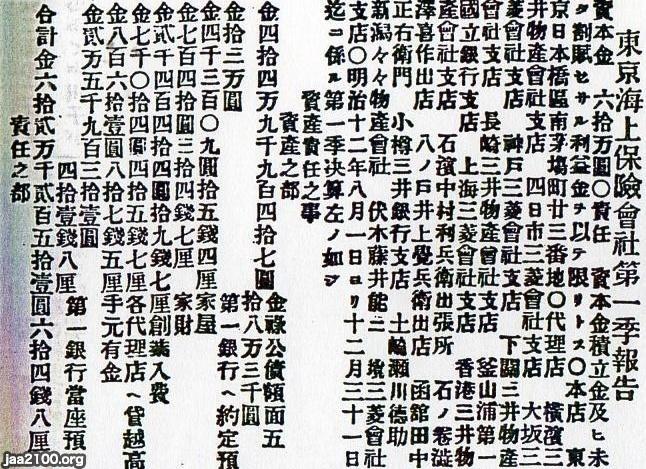 東京海上保險會社第一季報告
資本金 六拾万圓〇責任 資本金積立金及ヒ未
タ割賦ヒサル利益金ヲ以テ限リトス〇本店 東
京日本橋區南茅塲町廿三番地〇代理店 橫濱三
井物產會社支店 四日市三菱會社支店 大坂三
菱會社支店 神戸三菱會社支店 下關三井物產
會社支店 長崎三井物產會社支店 釜山浦第一
國立銀行支店 上海三菱會社支店 香港三井物
產會社支店 石濱中村利兵衛出張所 石ノ卷澁
澤喜作出店 八ノ戸井上覺兵衛出店 函舘田中
正右衛門 小樽三井銀行支店 土崎瀬川德助
新潟々々物產會社 伏木藤井能三 堺三菱會社
支店〇明治十二年八月一日ヨリ十二月三十一日
迄ニ係ル第一季決算左ノ如シ
資產責任之事
資產之部
金四拾四万九千九百四拾七圓 金祿公債額面五
拾八万三千圓
金拾三万圓 第一銀行ヘ約定預
金四千三百〇九圓拾五錢四厘 家屋
金七百四拾圓三拾四錢七厘 家財
金貳千四百四拾四圓拾九錢七厘 創業入費
金七千〇拾四圓四拾五錢七厘 各代理店ヘ貸越高
金八百六拾壹圓八拾七錢五厘 手元有金
金貳万五千九百三拾壹圓
四拾壹錢八厘 第一銀行當座預
合計金六拾貳万千貳百五拾壹圓六拾四錢八厘
責任之部
jaa2100.org